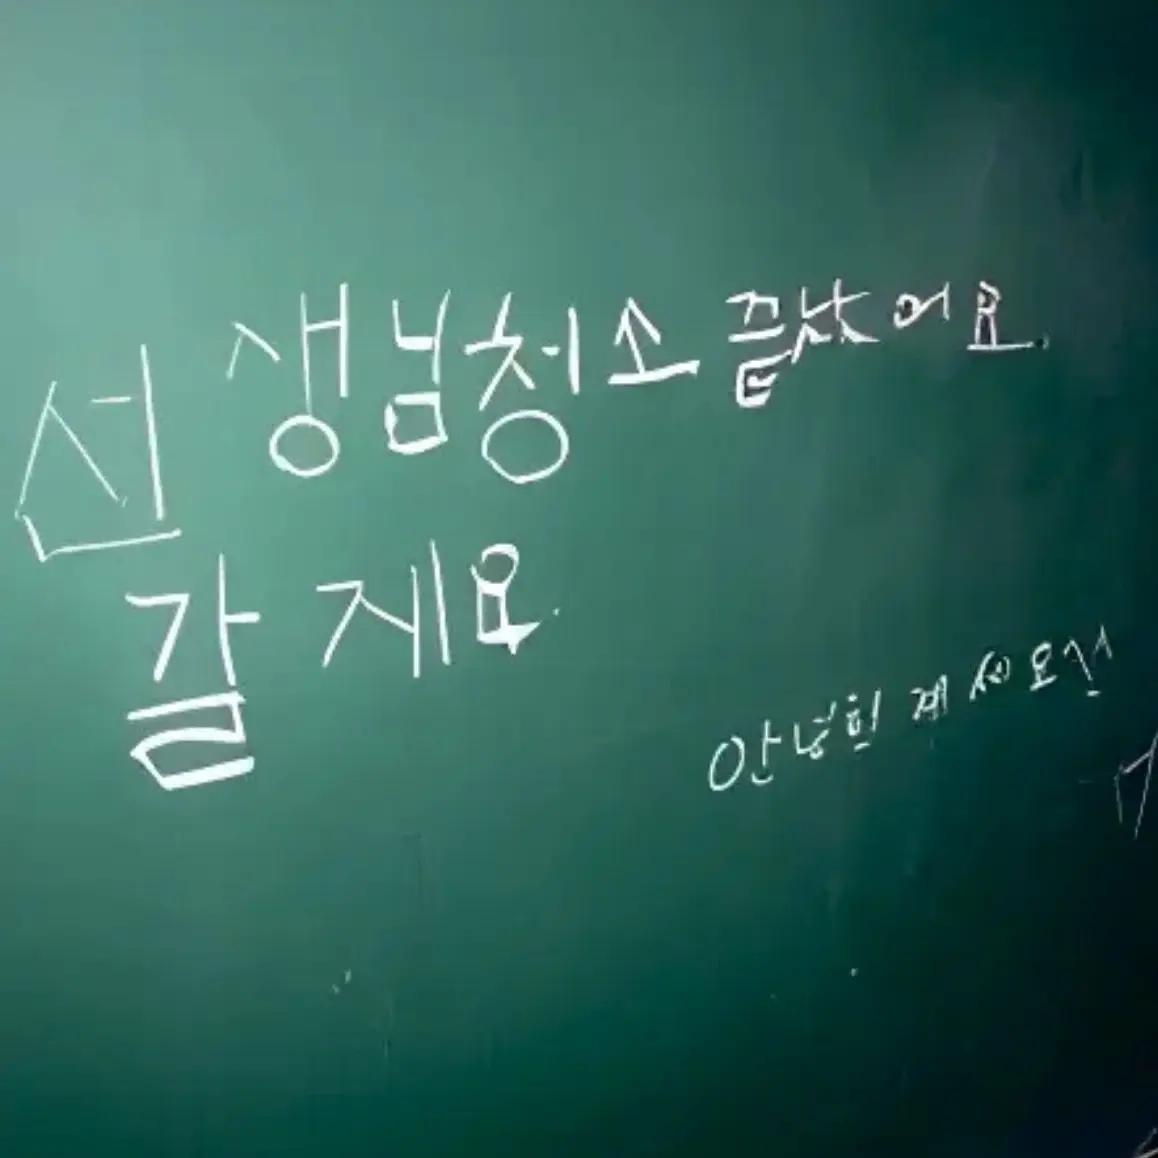 선생님청소 끝났어요.
갈게요.
안녕히 계세요 선